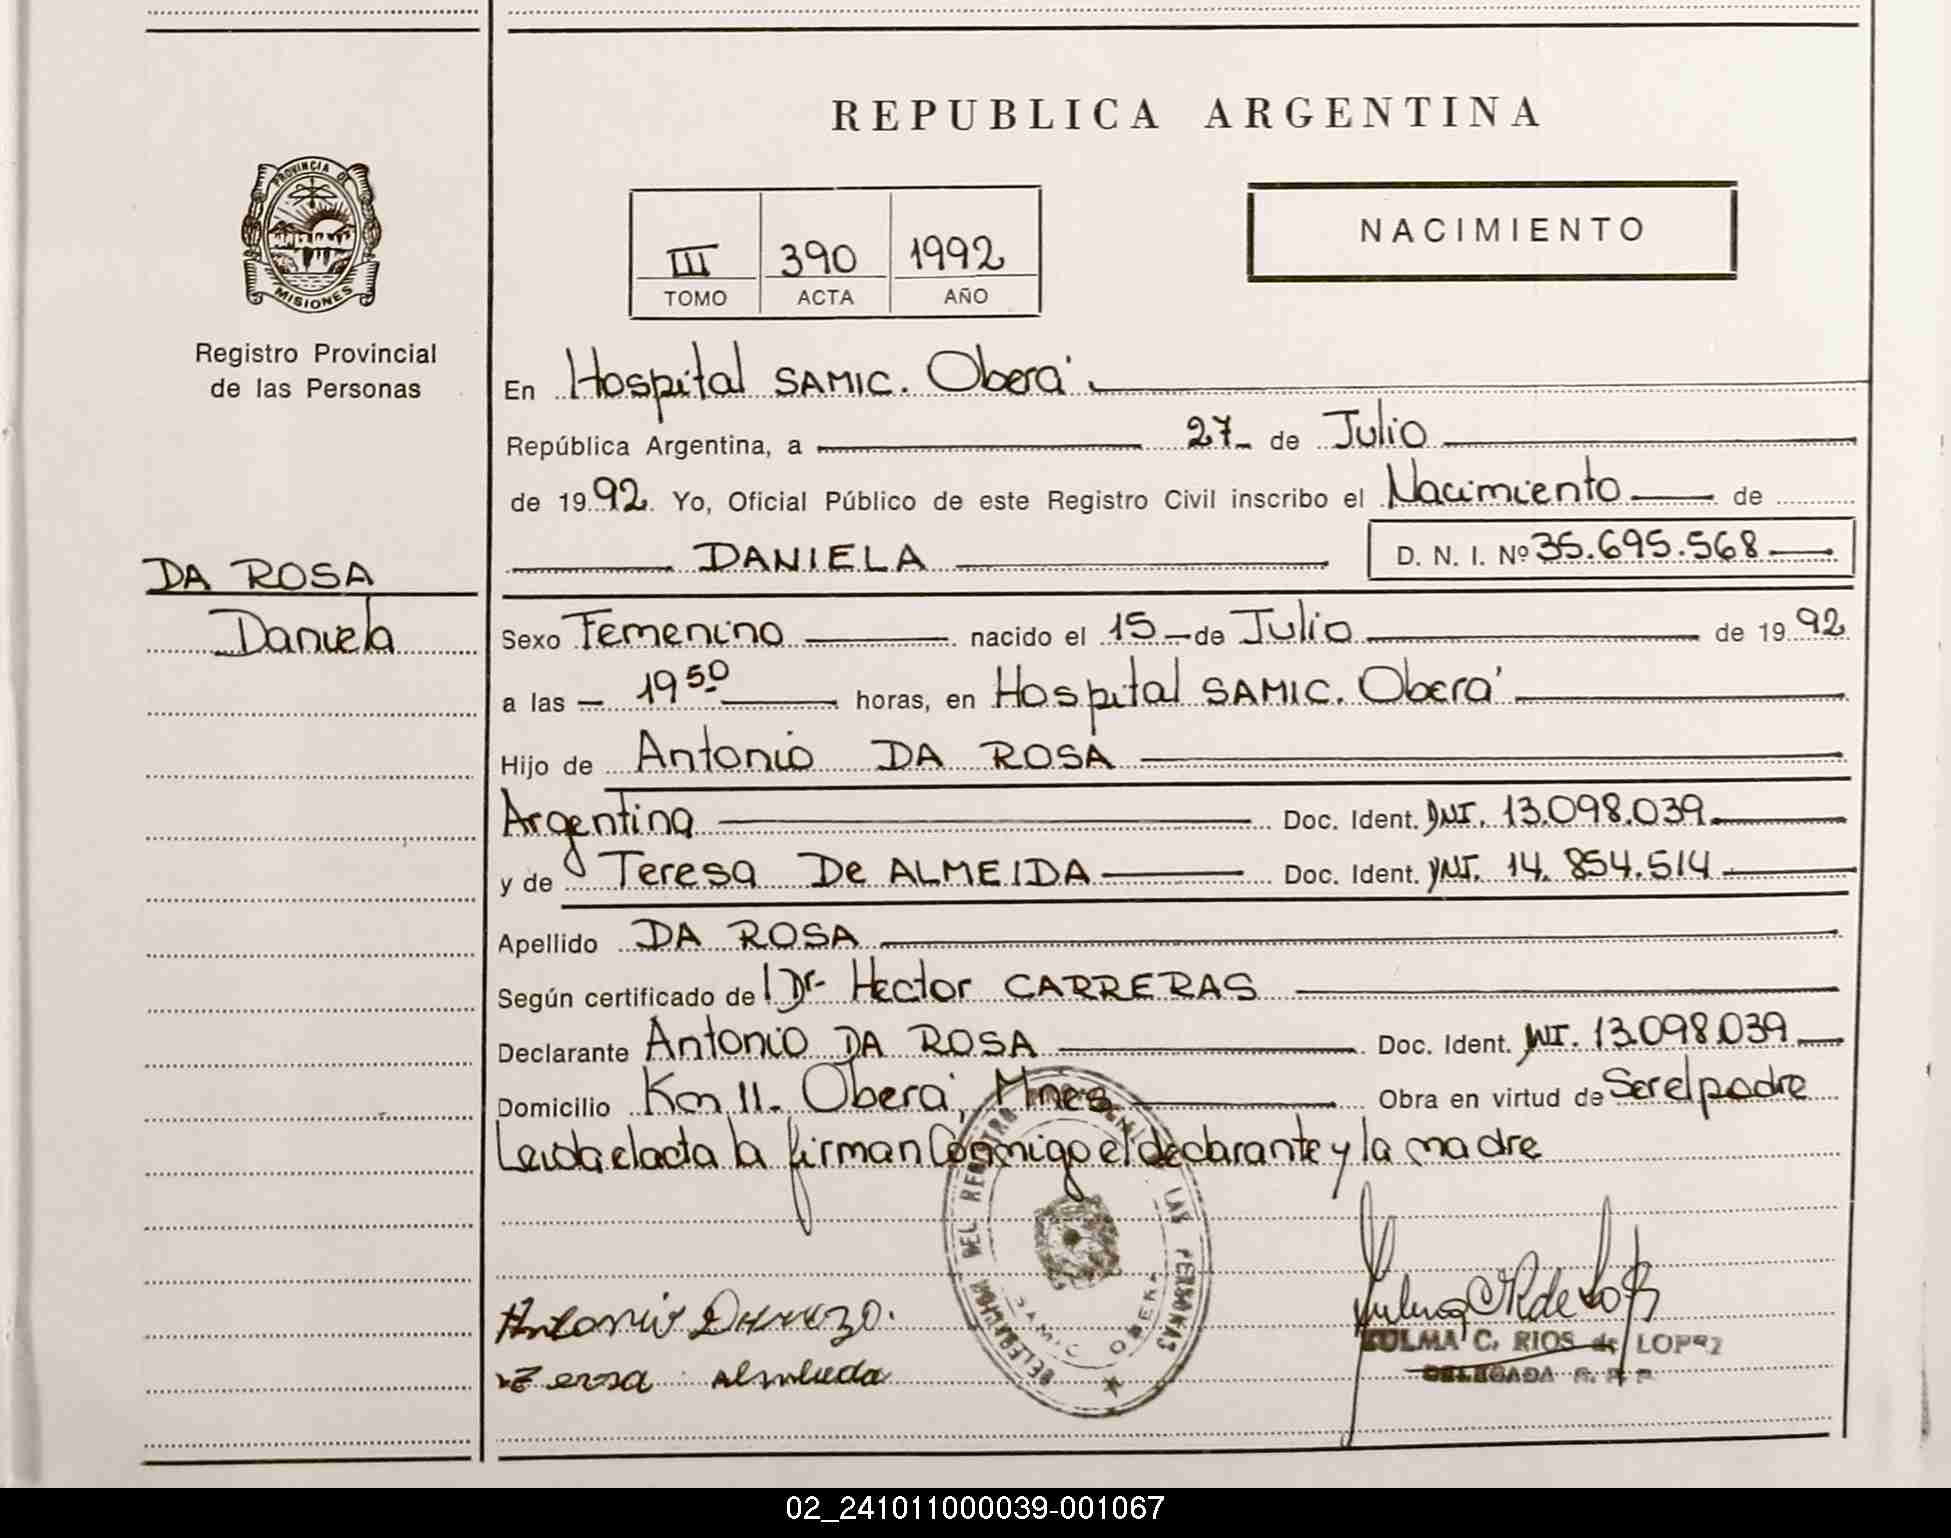 REPUBLICA ARGENTINA
PROVINCIA DE
MISIONES
Registro Provincial
de las Personas
NACIMIENTO
III 390 1992
TOMO ACTA AÑO
En Hospital SAMIC. Oberá.
República Argentina, a 27 de Julio
de 1992. Yo, Oficial Público de este Registro Civil inscribo el Nacimiento de
DANIELA D. N. I. Nº 35.695.568
DA ROSA
Daniela
Sexo Femenino nacido el 15 de Julio de 1992
a las 19 50 horas, en Hospital SAMIC. Oberá
Hijo de Antonio DA ROSA
Argentina Doc. Ident. DNI. 13.098.039
y de Teresa De ALMEIDA Doc. Ident. DNI. 14.854.514
Apellido DA ROSA
Según certificado de Dr. Hector CARRERAS
Declarante Antonio DA ROSA Doc. Ident. DNI. 13.098.039
Domicilio Km 11. Oberá, Mnes Obra en virtud de Ser el padre
Leida el acta la firman Conmigo el declarante y la madre
DELEGACION DEL REGISTRO LAS PERSONAS
SAMIC OBERA
Antonio
ZULMA C. RIOS de LOPEZ
DELEGADA R. P. P.
02_241011000039-001067